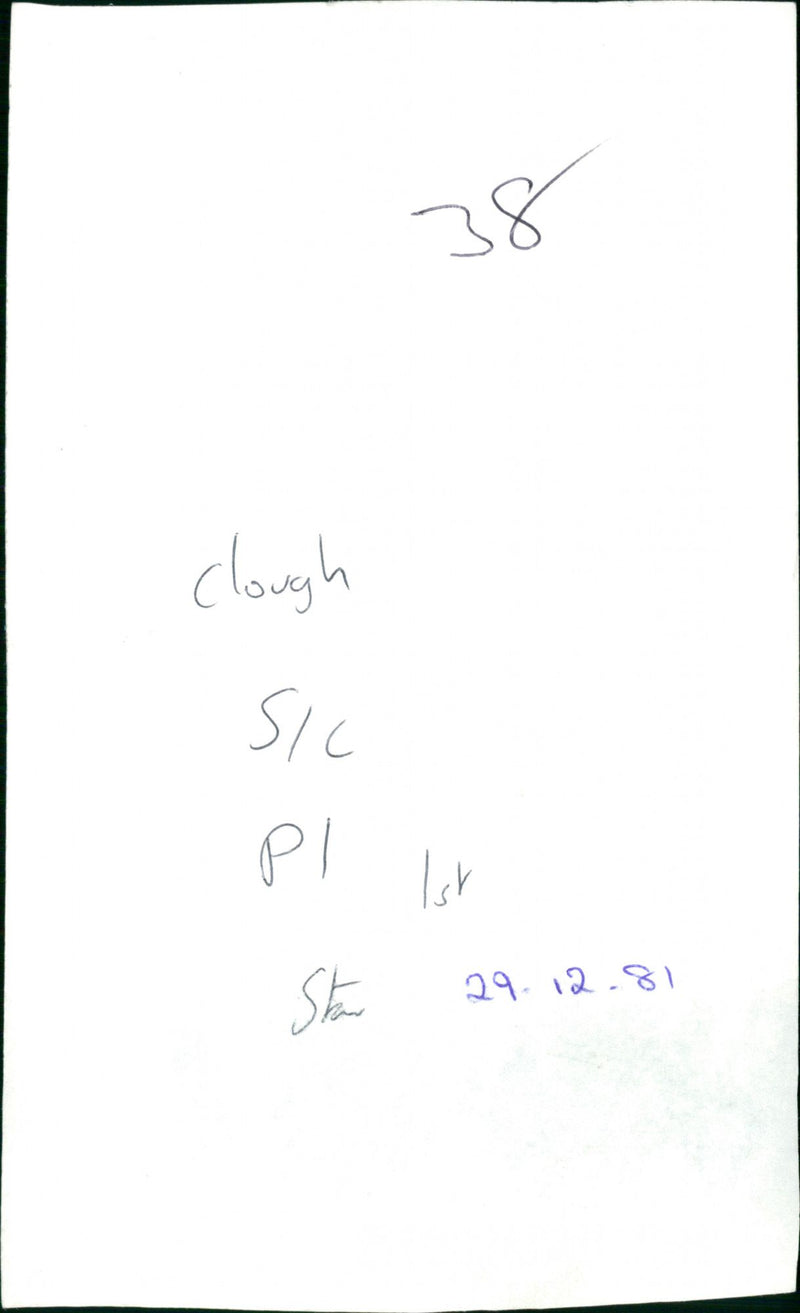 38
Clough
S/C
P1
1st
Star 29.12.81